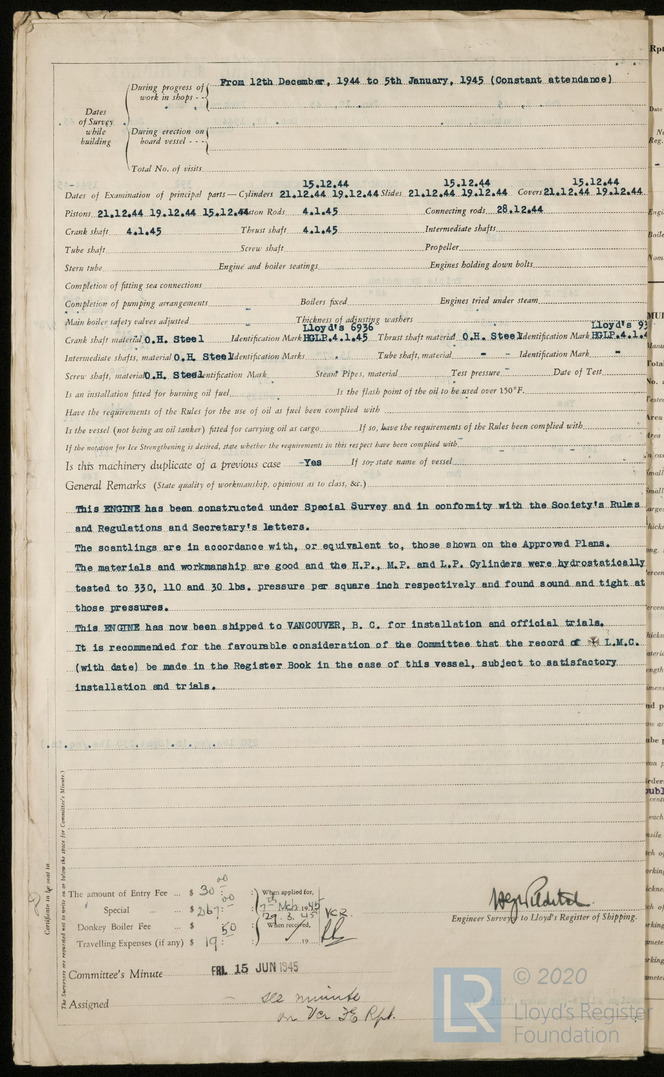 During progress of work in shops - - From 12th December, 1944 to 5th January, 1945 (Constant attendance)
Dates of Survey while building
During erection on board vessel - - -
Total No. of visits
15.12.44 15.12.44 15.12.44
Dates of Examination of principal parts—Cylinders 21.12.44 19.12.44 Slides 21.12.44 19.12.44 Covers 21.12.44 19.12.44
Pistons 21.12.44 19.12.44 15.12.44 Piston Rods 4.1.45 Connecting rods 28.12.44
Crank shaft 4.1.45 Thrust shaft 4.1.45 Intermediate shafts
Tube shaft Screw shaft Propeller
Stern tube Engine and boiler seatings Engines holding down bolts
Completion of fitting sea connections
Completion of pumping arrangements Boilers fixed Engines tried under steam
Main boiler safety valves adjusted Thickness of adjusting washers
Lloyd's 6936 Lloyd's 93
Crank shaft material O.H. Steel Identification Mark HGLP.4.1.45 Thrust shaft material O.H. Steel Identification Mark HGLP.4.1.4
Intermediate shafts, material O.H. Steel Identification Marks Tube shaft, material - - Identification Mark -
Screw shaft, material O.H. Steel Identification Mark Steam Pipes, material Test pressure Date of Test
Is an installation fitted for burning oil fuel Is the flash point of the oil to be used over 150°F.
Have the requirements of the Rules for the use of oil as fuel been complied with
Is the vessel (not being an oil tanker) fitted for carrying oil as cargo If so, have the requirements of the Rules been complied with
If the notation for Ice Strengthening is desired, state whether the requirements in this respect have been complied with
Is this machinery duplicate of a previous case -Yes If so, state name of vessel
General Remarks (State quality of workmanship, opinions as to class, &c.)
This ENGINE has been constructed under Special Survey and in conformity with the Society's Rules
and Regulations and Secretary's letters.
The scantlings are in accordance with, or equivalent to, those shown on the Approved Plans.
The materials and workmanship are good and the H.P., M.P. and L.P. Cylinders were hydrostatically
tested to 330, 110 and 30 lbs. pressure per square inch respectively and found sound and tight at
those pressures.
This ENGINE has now been shipped to VANCOUVER, B. C. for installation and official trials.
It is recommended for the favourable consideration of the Committee that the record of ✠ L.M.C.
(with date) be made in the Register Book in the case of this vessel, subject to satisfactory
installation and trials.
Certificate to be sent to
The Surveyors are requested not to write on or below the space for Committee's Minute.
The amount of Entry Fee ... $ 30:00 When applied for,
Special ... $ 267:00
29.3.45 VCR
Donkey Boiler Fee ... $ When received,
Travelling Expenses (if any) $ 19:50 19
Engineer Surveyor to Lloyd's Register of Shipping.
Committee's Minute FRI. 15 JUN 1945
Assigned - see minute
on Vcr FE Rpt.
LR
© 2020
Lloyd's Register
Foundation